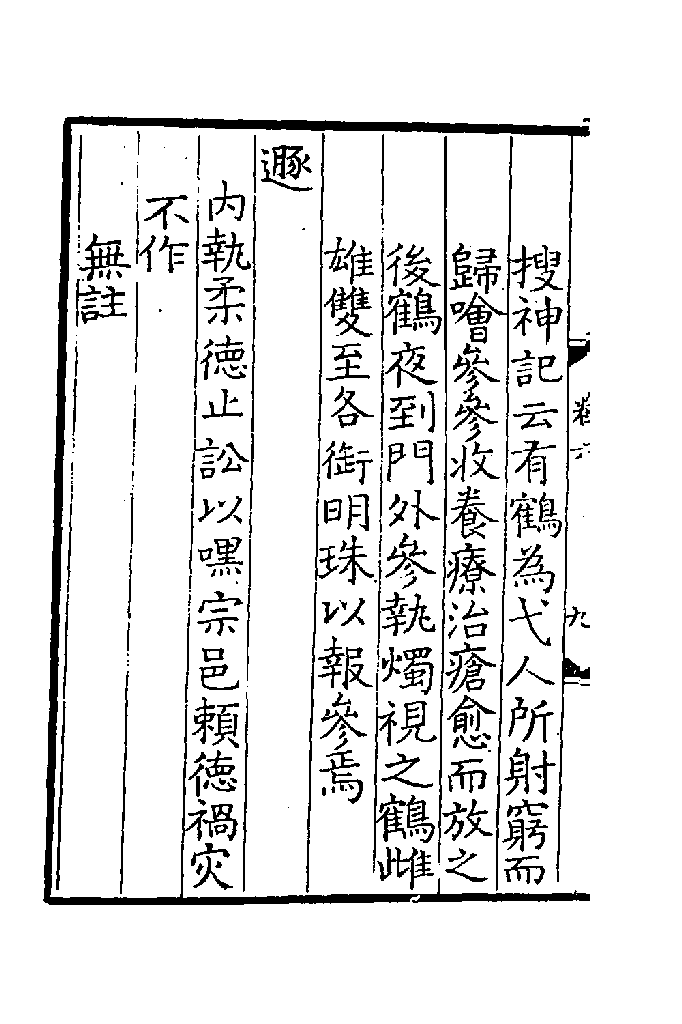 卷六
九
搜神記云有鶴為弋人所射窮而
歸噲參參收養療治瘡愈而放之
後鶴夜到門外參執燭視之鶴雌
雄雙至各銜明珠以報參焉
遯
內執柔德止訟以嘿宗邑賴德禍灾
不作
無註